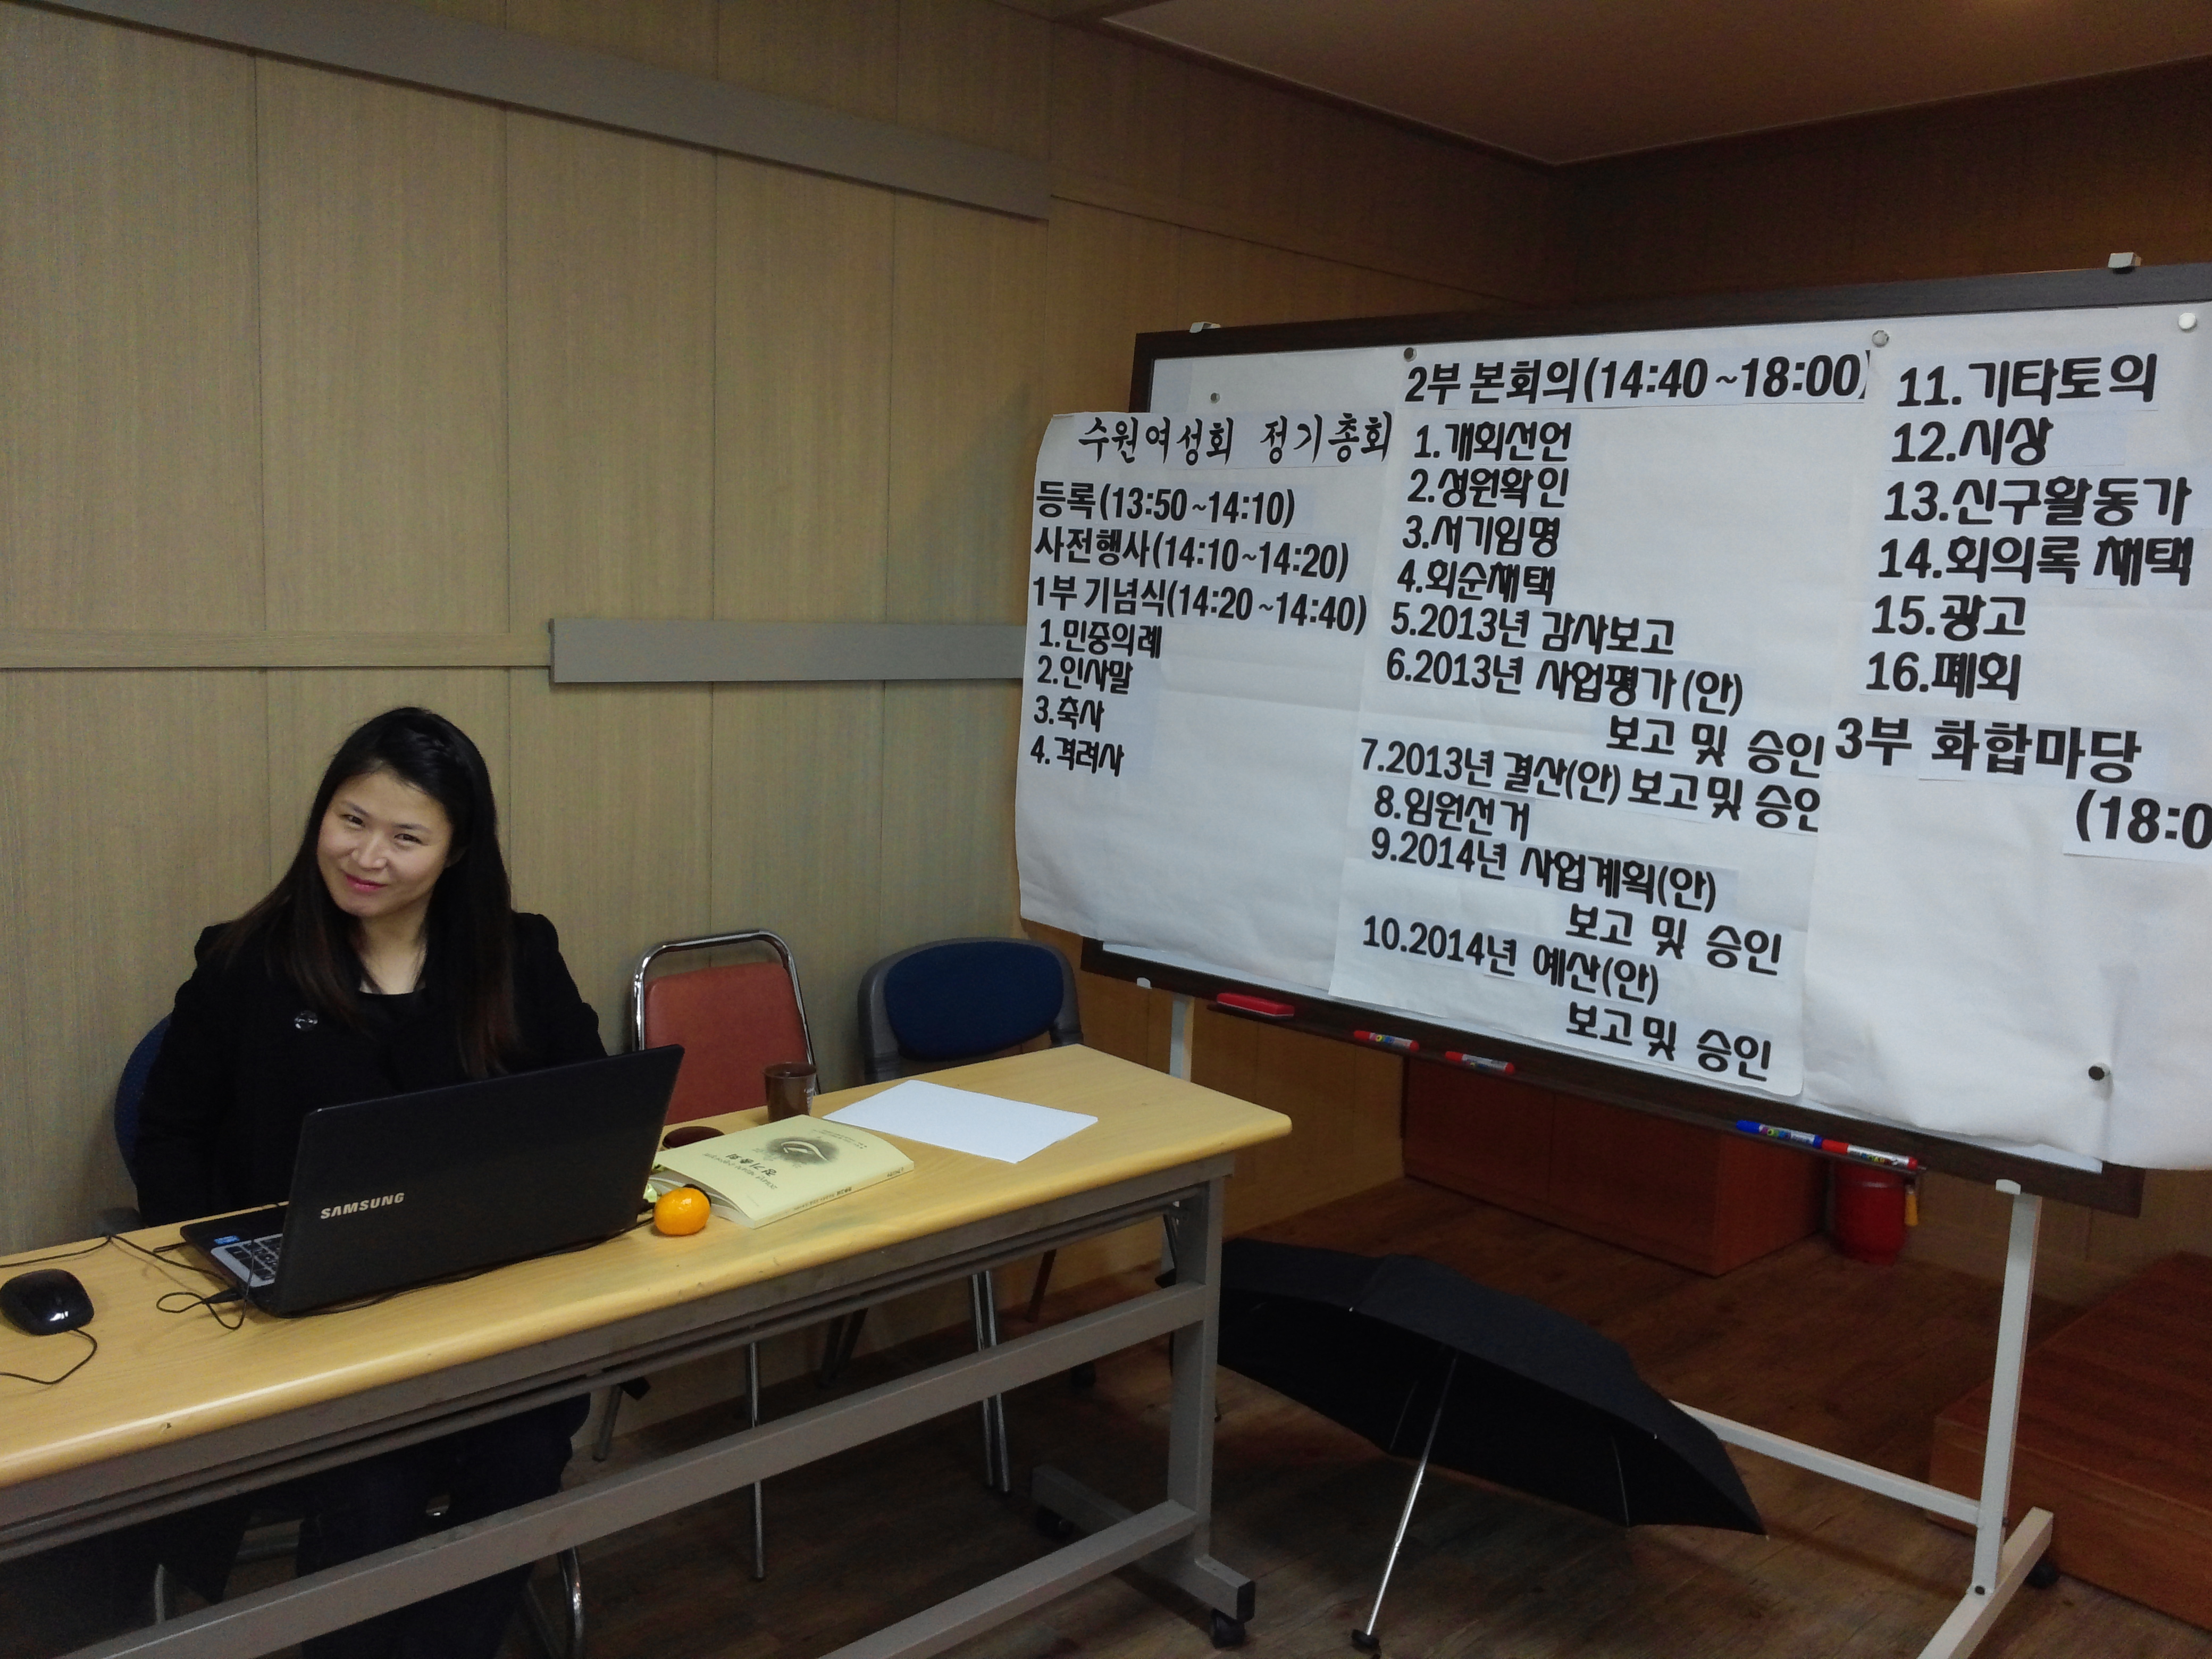 수원여성회 정기총회
등록(13:50~14:10)
사전행사(14:10~14:20)
1부 기념식(14:20~14:40)
1.민중의례
2.인사말
3.축사
4.격려사
2부 본회의(14:40~18:00)
1.개회선언
2.성원확인
3.서기임명
4.회순채택
5.2013년 감사보고
6.2013년 사업평가(안)
보고 및 승인
7.2013년 결산(안) 보고 및 승인
8.임원선거
9.2014년 사업계획(안)
보고 및 승인
10.2014년 예산(안)
보고 및 승인
11.기타토의
12.시상
13.신구활동가
14.회의록 채택
15.광고
16.폐회
3부 화합마당
(18:0
SAMSUNG
정기총회